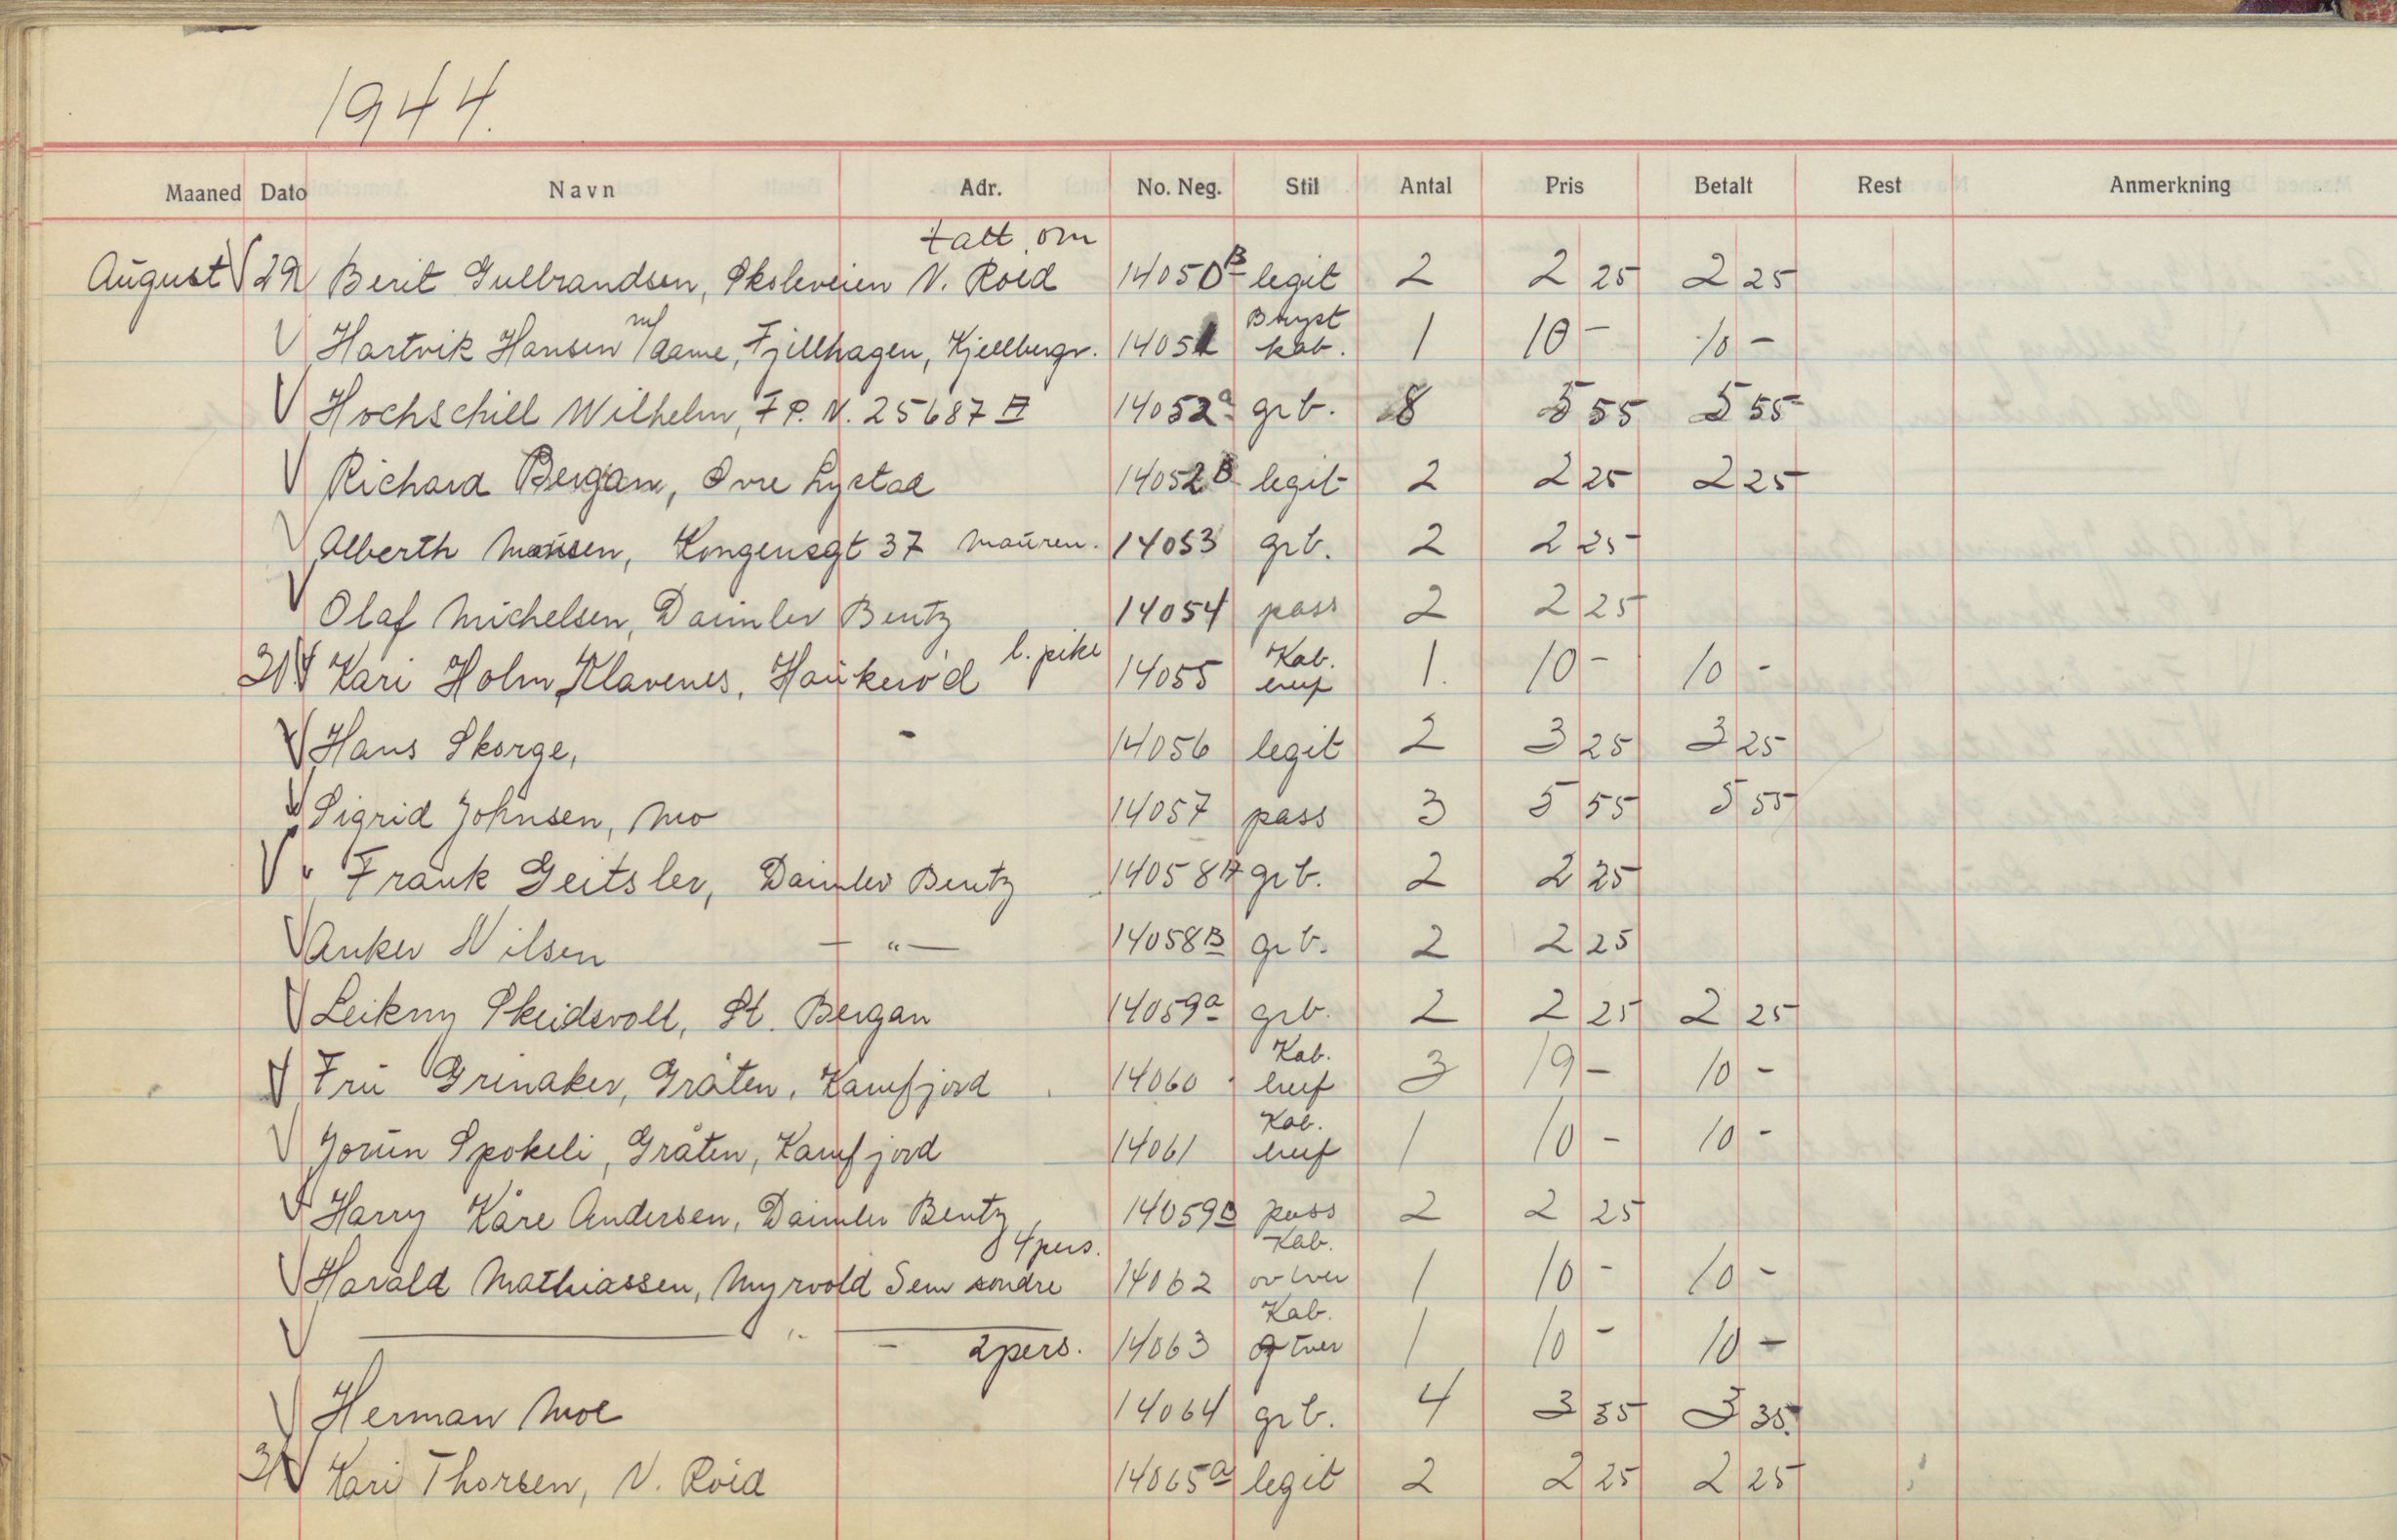 1944.
Maaned Dato Navn Adr. No. Neg. Stil Antal Pris Betalt Rest Anmerkning
tatt om
August 29 Berit Gulbrandsen, N. Roid 14050B legit 2 2 25 2 25
Bryst
Hartvik Hansen m/ Fjellhagen, Kjellbergv. 14051 kab. 1 10 - 10 -
Hochschill Wilhelm, F.P.N. 25687 14052a grb. 8 5 55 5 55
Richard Bergan, Øvre Lystad 14052B legit 2 2 25 2 25
Alberth Kongensgt 37 mauren. 14053 grb. 2 2 25
Olaf Michelsen, Daimler Bentz, 14054 pass 2 2 25
l. pike Kab.
31 Kari Holm Klavenes, Haukerød 14055 1. 10 - 10 -
Hans Skorge, - 14056 legit 2 3 25 3 25
Sigrid Johnsen, Mo 14057 pass 3 5 55 5 55
" Frank Geitsler, Daimler Bentz 14058A grb. 2 2 25
Anker Nilsen - " - 14058B grb. 2 2 25
Leikny Skeidsvoll, St. Bergan 14059a grb. 2 2 25 2 25
Kab.
Fru Grinaker, Gråten, Kamfjord 14060 3 19 - 10 -
Kab.
Jorun Spokeli, Gråten, Kamfjord 14061 1 10 - 10 -
Harry Kåre Andersen, Daimler Bentz, 14059B pass 2 2 25
4 pers. Kab.
Harald Mathiassen, Myrvold Sem søndre 14062 1 10 - 10 -
Kab.
" - 2 pers. 14063 1 10 - 10 -
Herman Moe 14064 grb. 4 3 35 3 35
31 Kari Thorsen, N. Roid 14065a legit 2 2 25 2 25